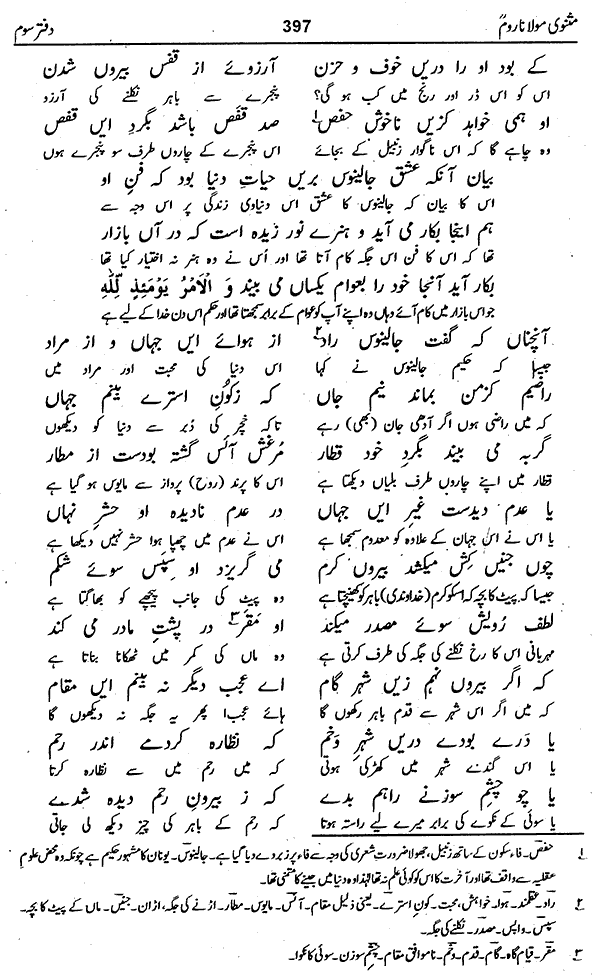 مثنوی مولانا روم
397
دفتر سوم
کے بود او را دریں خوف و حزن آرزوئے از قفس بیروں شدن
اس کو اس ڈر اور رنج میں کب ہو گی؟ پنجرے سے باہر نکلنے کی آرزو
او ہمی خواہد کزیں ناخوش حفص۱ صد قفص باشد بگردِ ایں قفص
وہ چاہے گا کہ اس ناگوار زنبیل کے بجائے اس پنجرے کے چاروں طرف سو پنجرے ہوں
بیان آنکہ عشقِ جالینوس بریں حیاتِ دنیا بود کہ فنِ او
اس کا بیان کہ جالینوس کا عشق اس دنیاوی زندگی پر اس وجہ سے
ہم اینجا بکار می آید و ہنرے نور زیدہ است کہ در آں بازار
تھا کہ اس کا فن اس جگہ کام آتا تھا اور اُس نے وہ ہنر نہ اختیار کیا تھا
بکار آید آنجا خود را بعوام یکساں می بیند وَ الْاَمْرُ یَوْمَئِذٍ لِّلّٰہِ
جو اس بازار میں کام آئے وہاں وہ اپنے آپ کو عوام کے برابر سمجھتا تھا اور حکم اس دن خدا کے لیے ہے
آنچناں کہ گفت جالینوس راد۲ از ہوائے ایں جہاں و از مراد
جیسا کہ حکیم جالینوس نے کہا اس دنیا کی محبت اور مراد میں
راضیم کزمن بماند نیم جاں کہ زکُونِ استرے بینم جہاں
کہ میں راضی ہوں اگر آدھی جان (بھی) رہے تاکہ خچر کی دُبر سے دنیا کو دیکھوں
گربہ می بیند بگردِ خود قطار مُرغش آئس گشتہ بودست از مطار
قطار میں اپنے چاروں طرف بلیاں دیکھتا ہے اس کا پرند (روح) پرواز سے مایوس ہو گیا ہے
یا عدم دیدست غیرِ ایں جہاں در عدم نادیدہ او حشرِ نہاں
یا اس نے اس جہان کے علاوہ کو معدوم سمجھا ہے اس نے عدم میں چھپا ہوا حشر نہیں دیکھا ہے
چوں جنیں کِش میکشد بیروں کرم می گریزد او سِپَس سوئے شکم
جیسا کہ پیٹ کا بچہ کہ اسکو کرم (خداوندی) باہر کو کھینچتا ہے وہ پیٹ کی جانب پیچھے کو بھاگتا ہے
لطف رُویش سوئے مصدر میکند او مَقر۳ در پشتِ مادر می کند
مہربانی اس کا رخ نکلنے کی جگہ کی طرف کرتی ہے وہ ماں کی کمر میں ٹھکانا بناتا ہے
کہ اگر بیروں نہم زیں شہر گام اے عجب دیگر نہ بینم ایں مقام
کہ میں اگر اس شہر سے قدم باہر رکھوں گا ہائے عجب! پھر یہ جگہ نہ دیکھوں گا
یا دَرے بودے دریں شہرِ وَخم کہ نظارہ کردمے اندر رحم
یا اس گندے شہر میں کھڑکی ہوتی کہ میں رحم میں سے نظارہ کرتا
یا چو چشمِ سوزنے راہم بدے کہ ز بیرونِ رحم دیدہ شدے
یا سوئی کے نکوے کی برابر میرے لیے راستہ ہوتا کہ رحم کے باہر کی چیز دیکھ لی جاتی
۱ حفص۔ فاء سکون کے ساتھ زنبیل، جھولا ضرورت شعری کی وجہ سے فاء پر زبر دے دیا گیا ہے۔ جالینوس۔ یونان کا مشہور حکیم ہے چونکہ وہ محض علوم
عقلیہ سے واقف تھا اور آخرت کا اس کو کوئی علم نہ تھا لہٰذا وہ دنیا میں جینے کا متمنی تھا۔
۲ راد۔ عقلمند۔ ہوا۔ خواہش، محبت۔ کون استرے۔ یعنی ذلیل مقام۔ آئس۔ مایوس۔ مطار۔ اڑنے کی جگہ، اڑان۔ جنیں۔ ماں کے پیٹ کا بچہ۔
سپس۔ واپس۔ مصدر۔ نکلنے کی جگہ۔
۳ مقر۔ قیام گاہ۔ گام۔ قدم۔ وخم۔ ناموافق مقام۔ چشمِ سوزن۔ سوئی کا نکوا۔